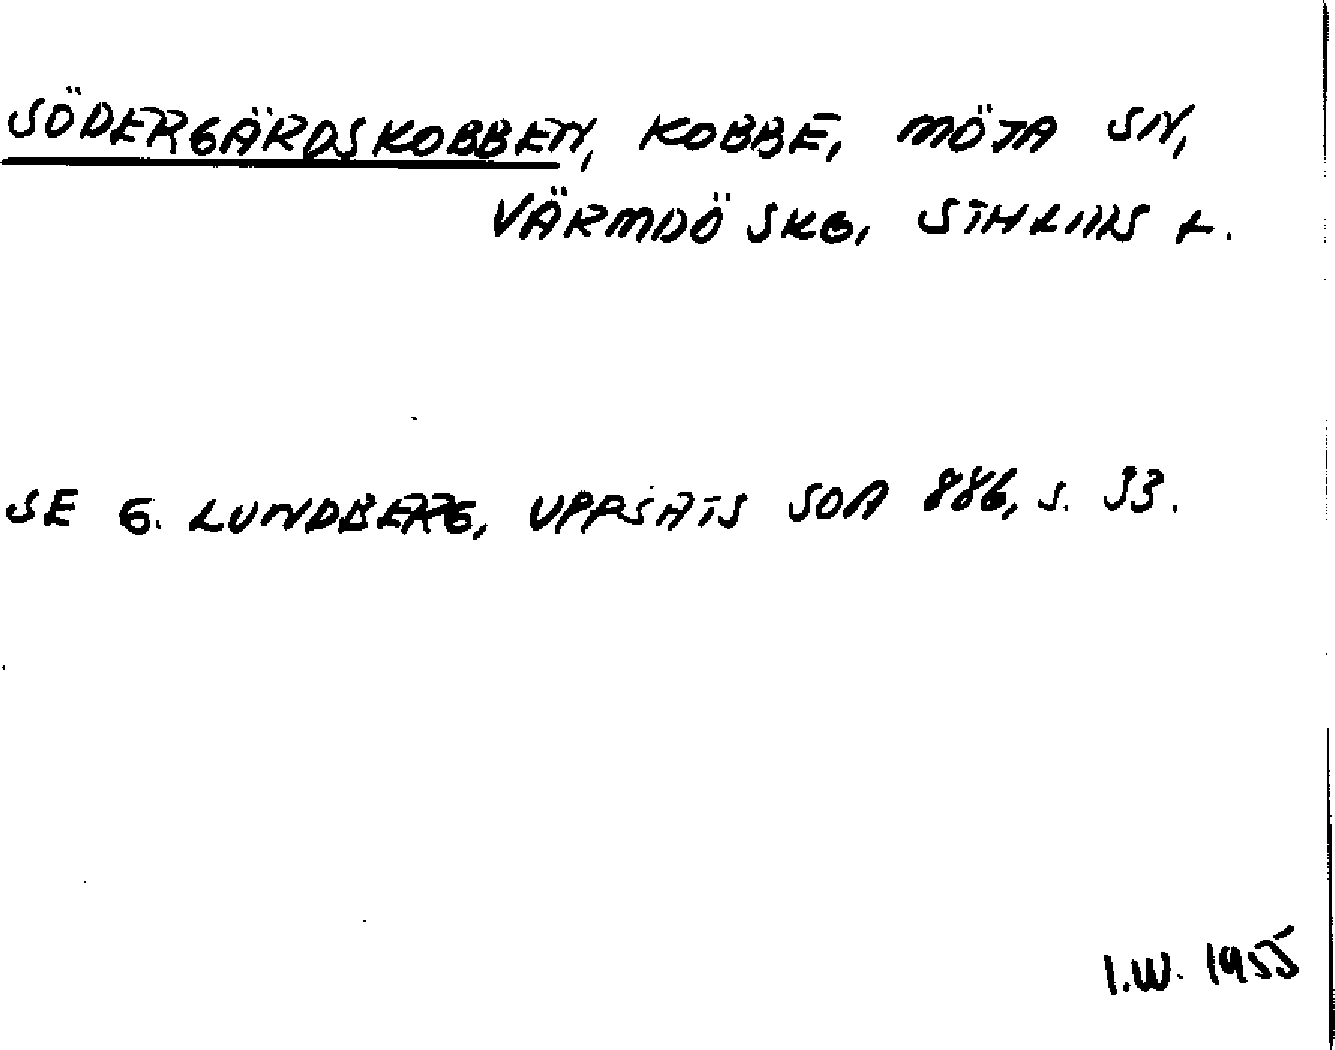 SÖDERGÄRDSKOBBEN, KOBBE, MÖJA SN,
VÄRMDÖ SKG, STHLMS L.
SE G. LUNDBERG, UPPSATS SOA 886, S. 33.
I.W. 1955